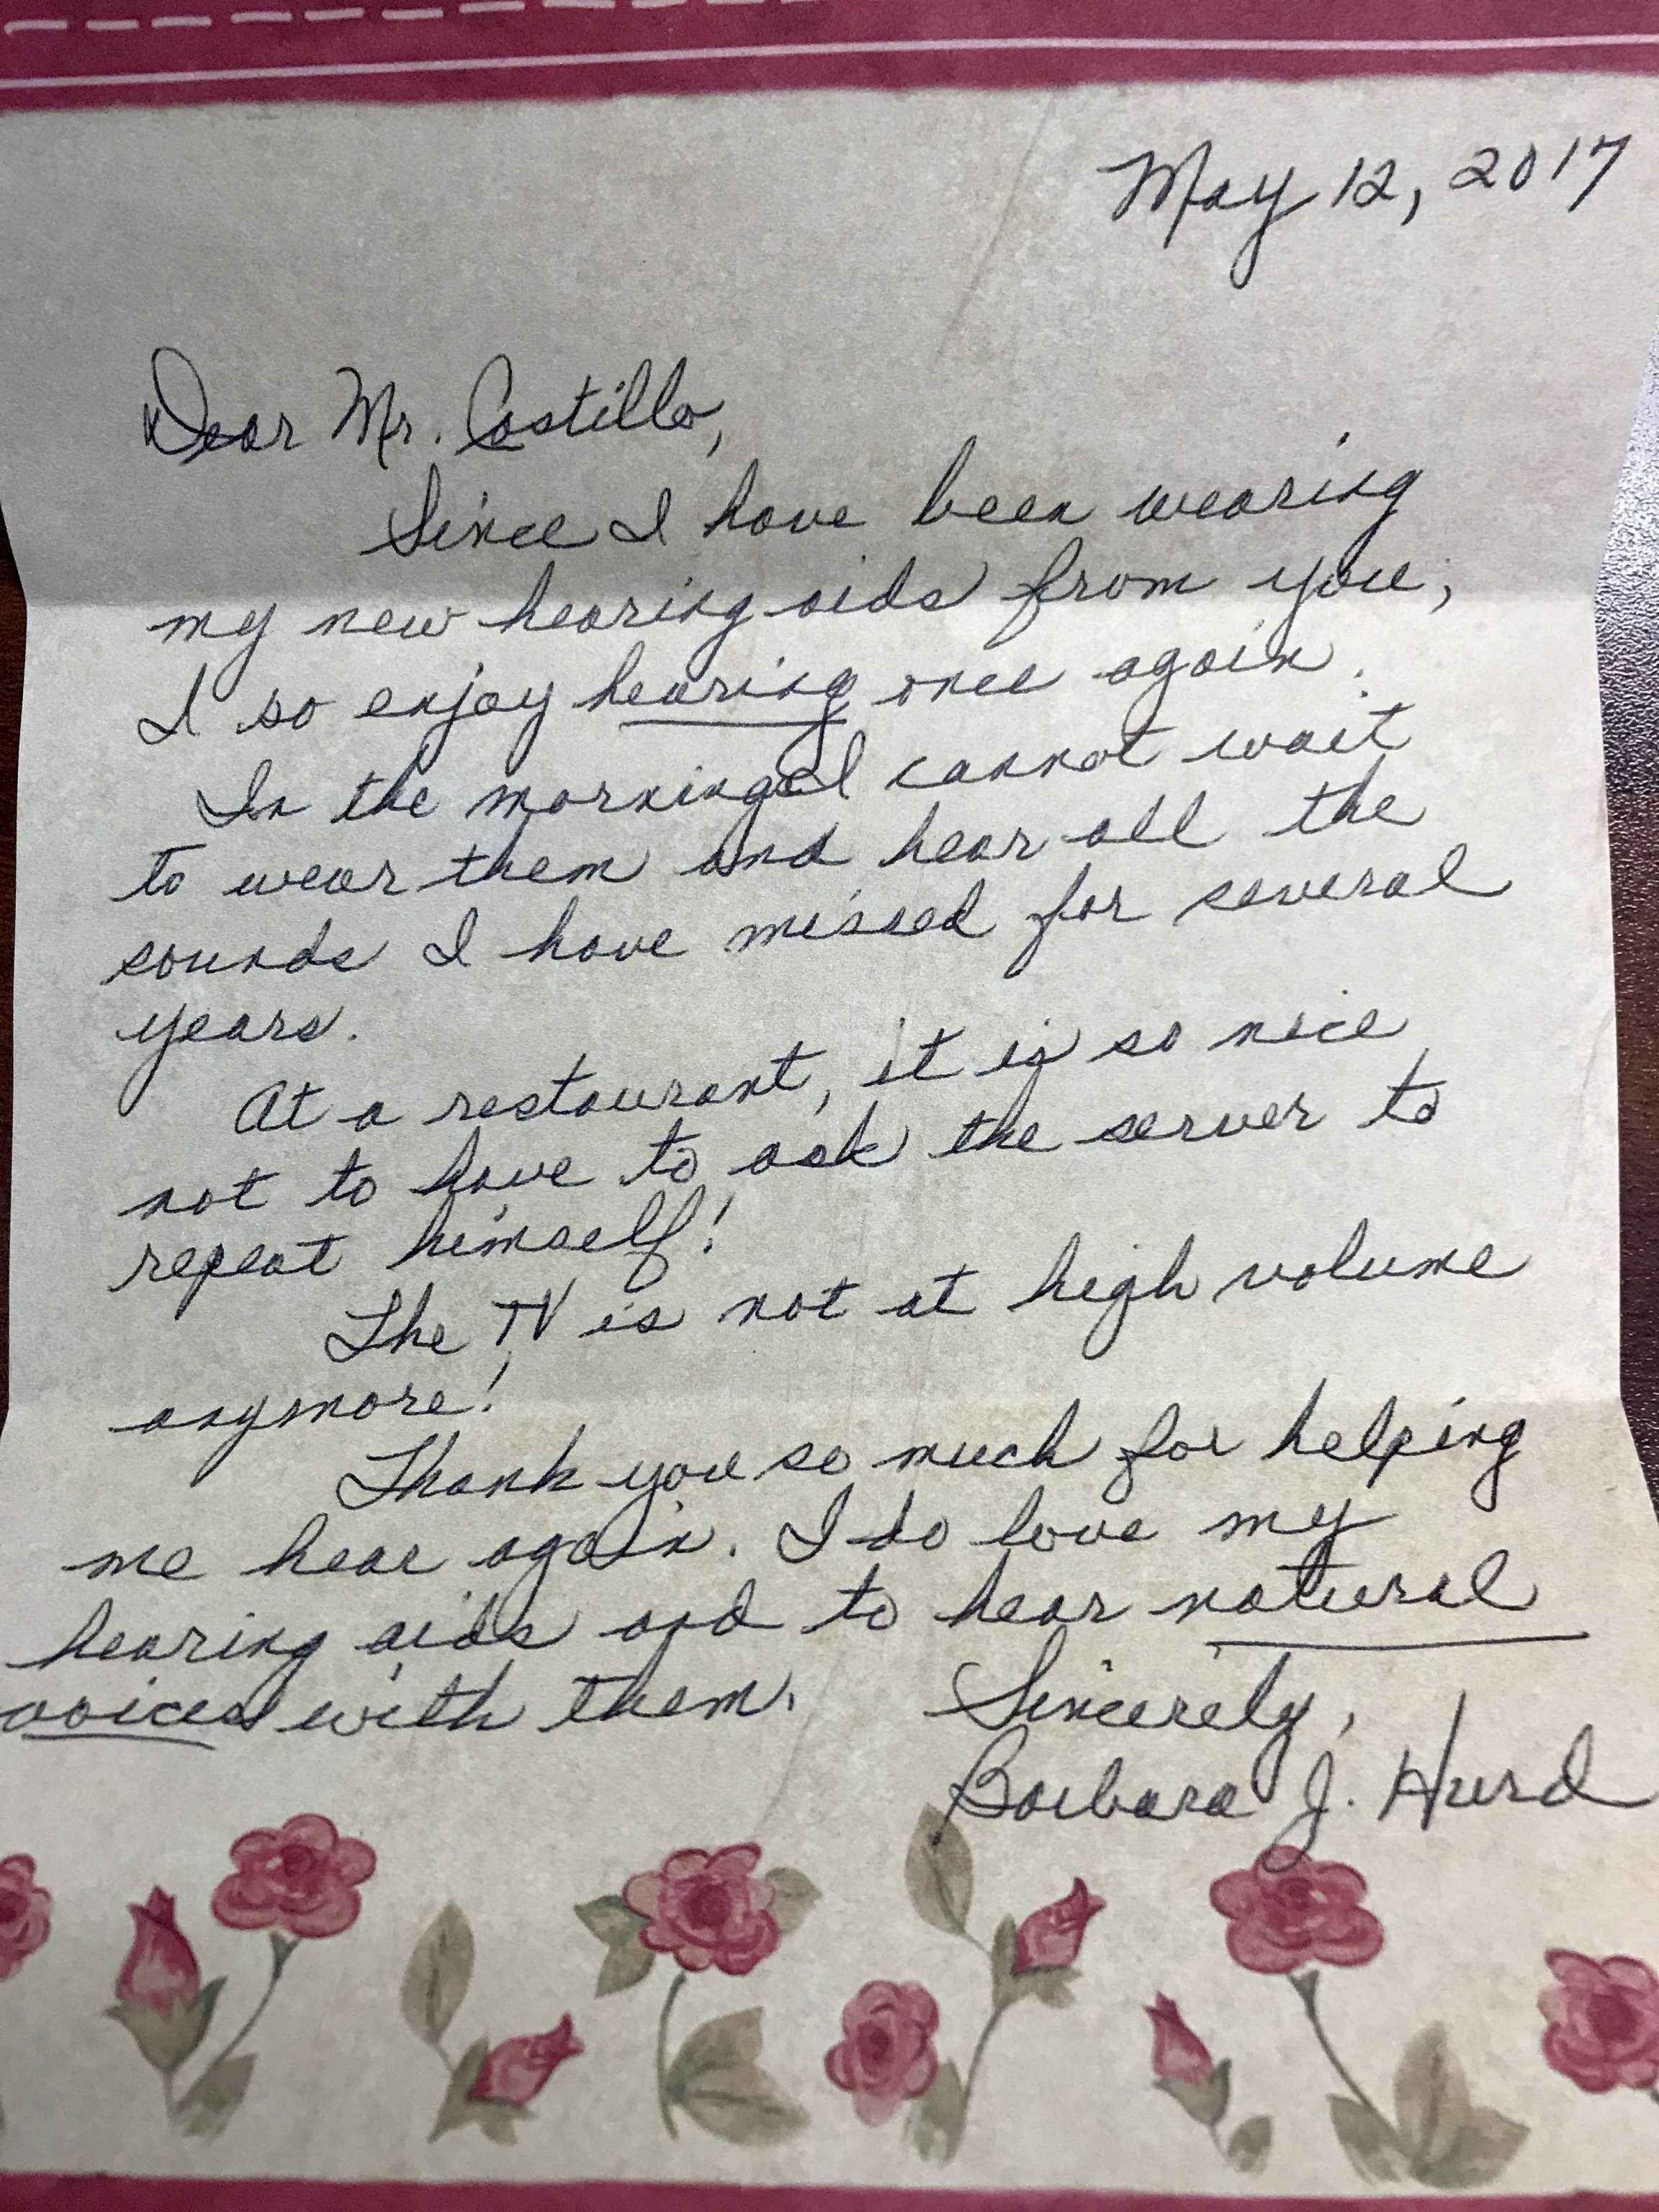 May 12, 2017
Dear Mr. Castillo,
Since I have been wearing
my new hearing aids from you,
I so enjoy hearing once again.
In the morning I cannot wait
to wear them and hear all the
sounds I have missed for several
years.
At a restaurant, it is so nice
not to have to ask the server to
repeat himself!
The TV is not at high volume
anymore!
Thank you so much for helping
me hear again. I do love my
hearing aids and to hear natural
voices with them.
Sincerely,
Barbara J. Hurd